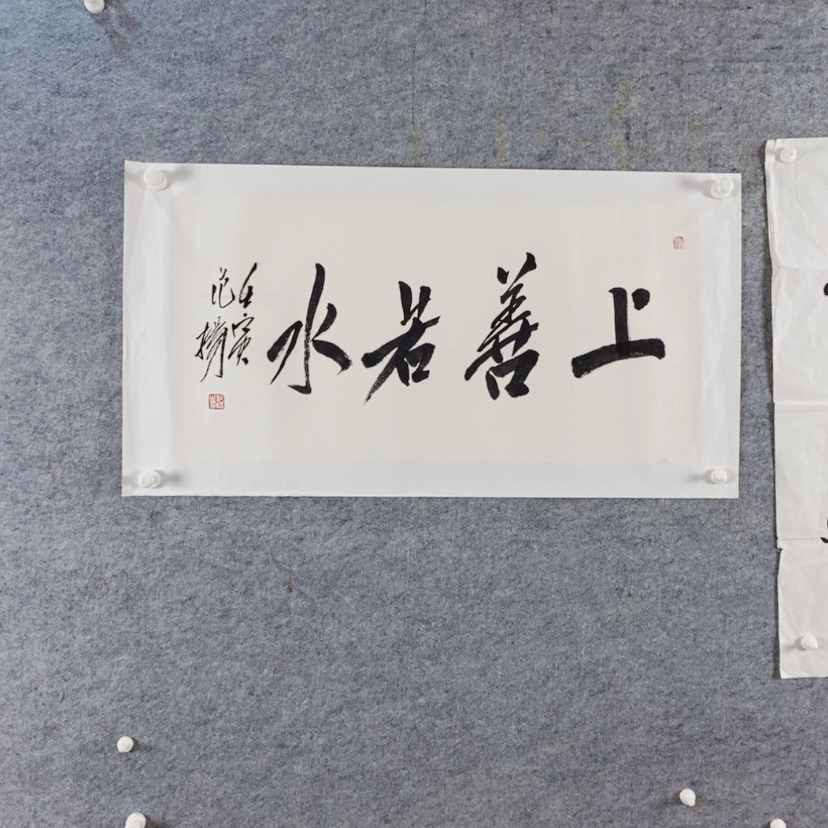 上善若水
壬寅
范